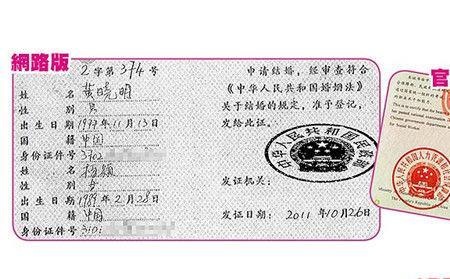 網路版
2字第374号
姓 名 黄晓明
性 别 男
出生日期 1977年11月13日
国 籍 中国
身份证件号 3702
姓 名 杨颖
性 别 女
出生日期 1989年2月28日
国 籍 中国
身份证件号 310
申请结婚，经审查符合
《中华人民共和国婚姻法》
关于结婚的规定，准予登记，
发给此证。
中华人民共和国民政部
发证机关：
发证日期：2011年10月26日
官